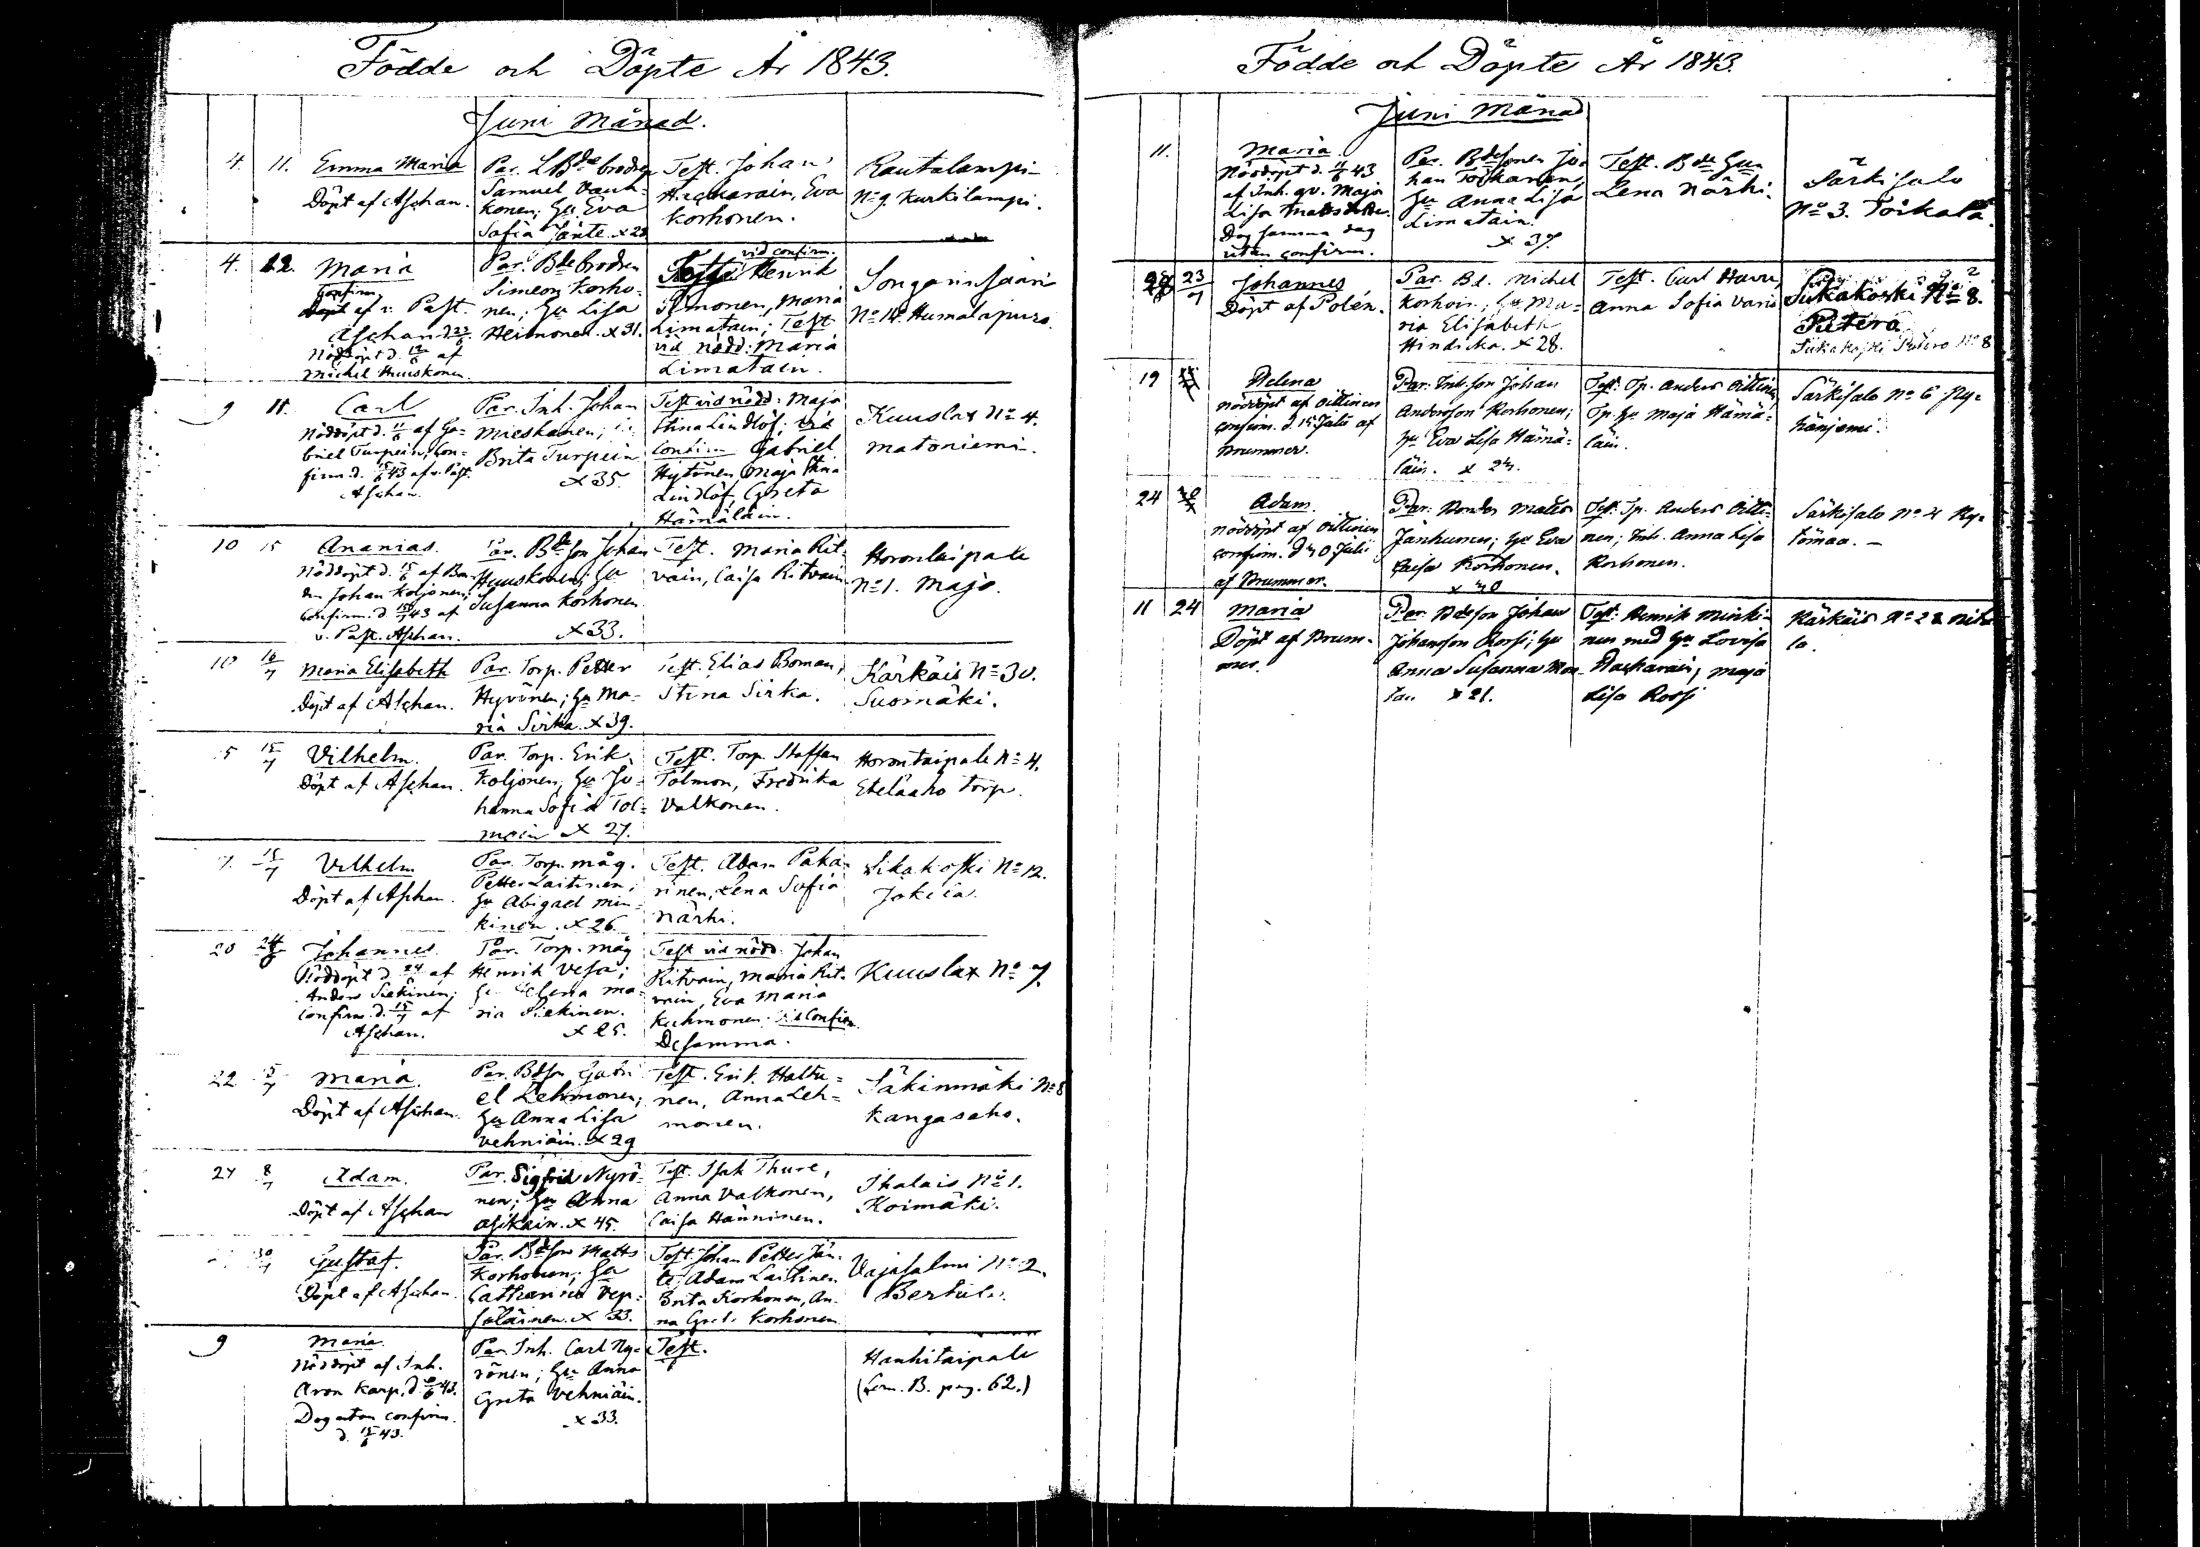 Födde och Döpte År 1843.
Juni Månad.
4. 11. Emma Maria
Döpt af Aschan.
Par. LBde brodren
Samuel Vauh-
konen; Hu Eva
Sofia Jänte. x 28
Test. Johan
Hagmarain, Eva
Korhonen.
Rautalampi
No 9. Kurkilampi.
4. 22. Maria
Confirm.
Döpt af v. Past.
Aschan d. 22/6
Nöddöpt d. 12/6 af
Michel Huuskonen.
Par. Bde brodren
Simeon Korho-
nen; Hu Lisa
Heimonen. x 31.
Test. vid confirm.
Henrik
Ilmonen, Maria
Limatain; Test.
vid nödd: Maria
Limatain.
Songarinsaari
No 14. Humalapuro.
9 11. Carl
Nöddöpt d. 11/6 af Ga-
briel Turpein, con-
firm. d. 15/6 43 af v. Past.
Aschan.
Par. Inh. Johan
Mieskonen;
Brita Turpein
x 35.
Test. vid nödd: Maja
Stina Lindlöf; vid
Confirm Gabriel
Hytönen, Maja Stina
Lindlöf, Greta
Hämäläin.
Kuuslax No 4.
Matoniemi.
10 15 Ananias.
Nöddöpt d. 15/6 af Bon-
den Johan Koljonen,
Confirm. d. 15/7 43 af
v. Past. Aschan.
Par. Bdeson Johan
Huuskonen; Hu
Susanna Korhonen
x 33.
Test. Maria Rit-
vain, Caisa Ritvain.
Horontaipale
No 1. Majo.
10 16/7 Maria Elisabeth
Döpt af Aschan.
Par. Torp. Petter
Hyvönen; Hu Ma-
ria Sirka. x 39.
Test. Elias Boman,
Stina Sirka.
Kärkäis No 30.
Suomäki.
5 15/7 Vilhelm.
Döpt af Aschan.
Par. Torp. Erik
Koljonen; Hu Jo-
hanna Sofia Tol-
main x 27.
Test. Torp. Staffan
Tolmon, Fredrika
Valkonen.
Horontaipale No 4.
Eteläaho torp.
7. 15/7 Vilhelm
Döpt af Aschan.
Par. Torp. måg.
Petter Laitinen;
Hu Abigael Min-
kinen. x 26
Test. Adam Paka-
rinen, Lena Sofia
Närhi.
Sikakoski No 12.
Jokila.
20 24/6 Johannes.
Nöddöpt d. 24/6 af
Anders Siekinen;
Confirm. d. 15/7 af
Aschan.
Par. Torp. måg
Henrik Vesa;
Hu Helena Ma-
ria Siekinen.
x 25.
Test. vid nödd. Johan
Ritvain, Maria Rit-
vain, Eva Maria
Kuhmonen. vid Confirm
Desamma.
Kuuslax No 7.
22 15/7 Maria.
Döpt af Aschan.
Par. Bdeson Gabri
el Lehmonen;
Hu Anna Lisa
Vehniäin. x 29
Test. Erik Haltu-
nen, Anna Leh-
monen.
Säkinmäki No 8
Kangasaho.
24 8/7 Adam.
Döpt af Aschan
Par. Sigfrid Nyrö-
nen; Hu Anna
Asikain. x 45.
Test. Isak Thure,
Anna Valkonen,
Caisa Hänninen.
Ihalais No 1.
Koimäki.
30/7 Gustaf.
Döpt af Aschan.
Par. Bdeson Matts
Korhonen; Hu
Catharina Vep-
säläinen. x 33.
Test. Johan Petter Jän-
te, Adam Laitinen
Brita Korhonen, An-
na Greta Korhonen
Vajasalmi No 2.
Bertula.
9 Maria
Nöddöpt af Inh.
Aron Karp, d. 43.
Dog utan confirm.
d. 43.
Par. Inh. Carl Ny-
rönen; Hu Anna
Greta Vehniäin.
x 33.
Test.
Hanhitaipale
(Com. B. pag. 62.)
Födde och Döpte År 1843.
Juni Månad
11. Maria.
Nöddöpt d. 11/6 43
af Inh. qv. Maja
Lisa Mattsdotter.
Dog samma dag
utan confirm.
Par. Bdesonen Jo-
han Toikanen,
Hu Anna Lisa
Limatain.
x 37.
Test. Bde Hu
Lena Närhi.
Särkisalo
No 3. Toikala.
28 23/7 Johannes
Döpt af Polén.
Par. Bd. Michel
Korhoin; Hu Ma-
ria Elisabeth
Hindicka. x 28.
Test. Carl Harve,
Anna Sofia Varis
Sikakoski No 8.
Petero
Sikakoski Petero No 8
19 Helena
nöddöpt af Oittinen
confirm. d. 15 Julii af
Brummer.
Par. Inh. son Johan
Andersson Korhonen;
Hu Eva Lisa Hämä-
läin. x 24.
Test. Tp. Anders Oittinen,
Tp. Hu Maja Hämä-
läin.
Särkisalo No 6 Ry-
hänjemi.
24 Adam.
nöddöpt af Oittinen
confirm. d 30 Julii
af Brummer.
Par. Bonden Matts
Jänhunen; Hu Eva
Caisa Korhonen.
x 40
Test. Tp. Anders Oitti-
nen; Inh. Anna Lisa
Korhonen.
Särkisalo No 4 Ky-
tömaa. —
11 24 Maria
Döpt af Brum-
mer.
Par. Bdeson Johan
Johansson Rossi; Hu
Anna Susanna Mar-
tan x 21.
Test. Henrik Minki-
nen med Hu Lovisa
Hackarain, Maja
Lisa Rossi
Kärkäis No 22
la.